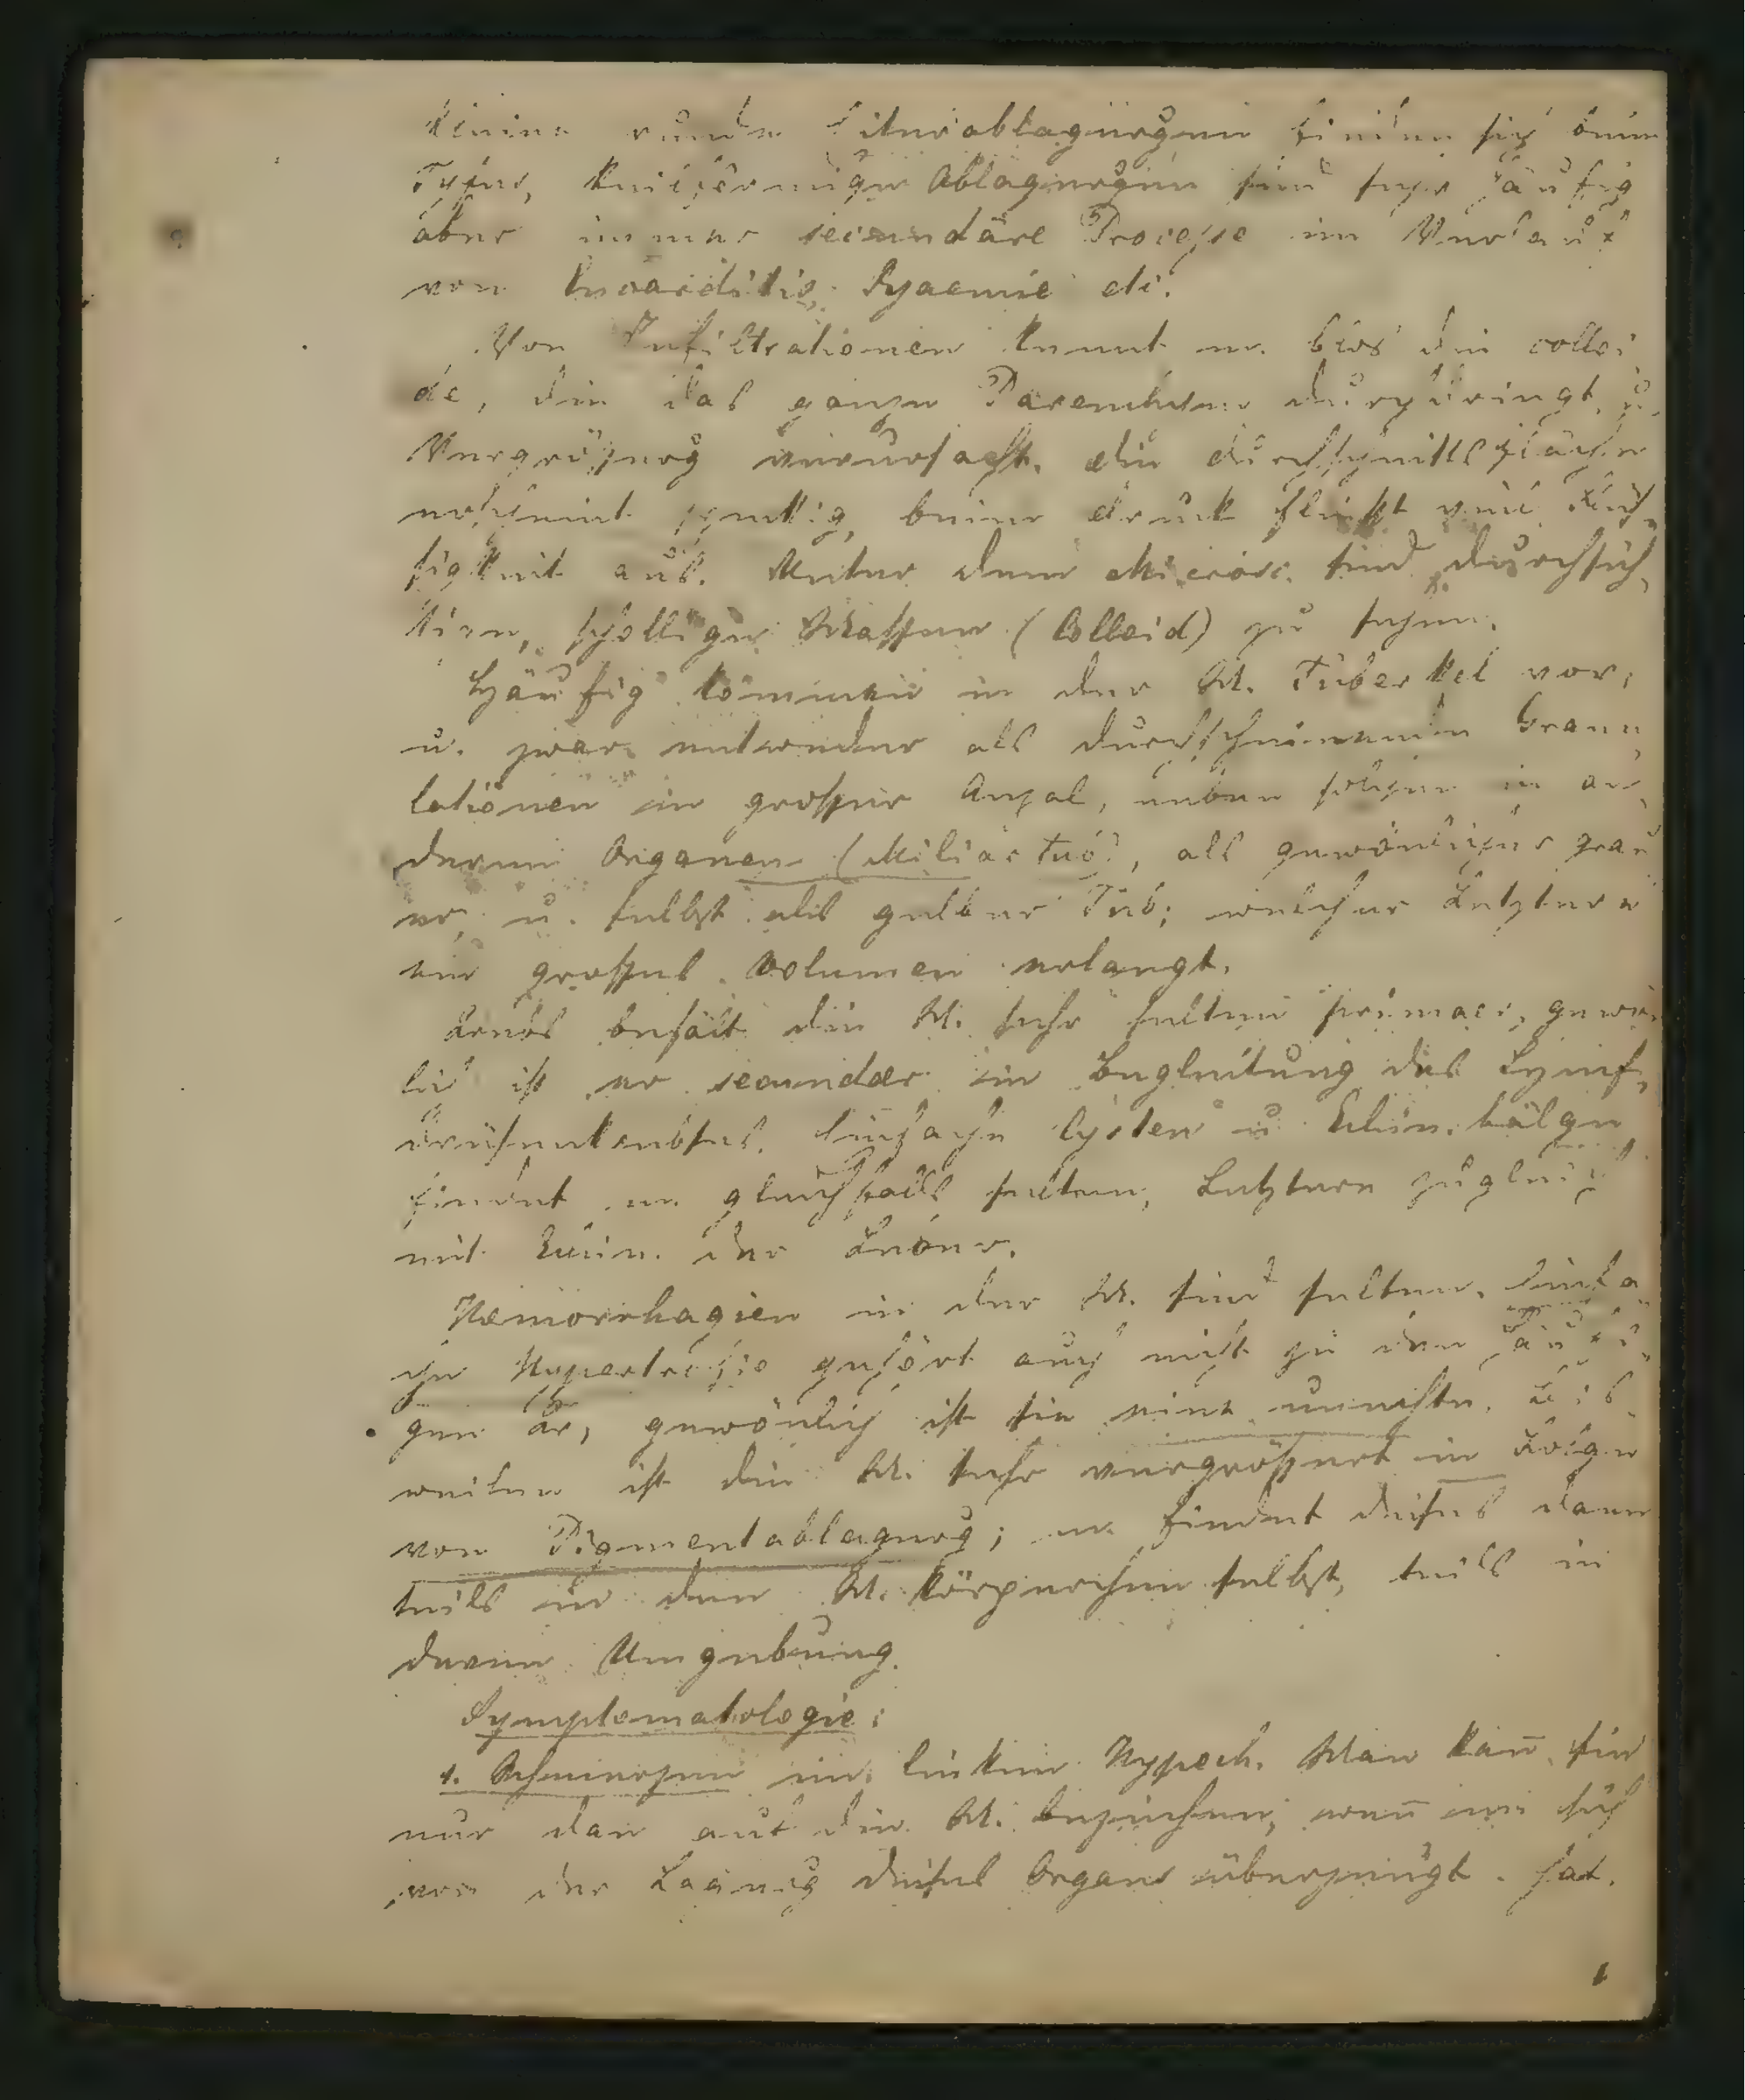 kleine runde Eiterablagerungen finden sich beim
Tyfus, keilförmige Ablagerungen sind sehr häufig
aber immer secundäre Processe im Verlauf
von Encarditis, Pyaemie etc.
Von Infiltrationen kennt m. blos die colloi
de, die das ganze Parenchym durchdringt, u.
Vergrößerung verursacht. die durchschnittsfläche
erscheint speckig, beim druck fließt viel Flüs,
sigkeit aus. Unter dem Microsc. sind durchsich,
tige, schollige Massen (Colloid) zu sehen.
Häufig kommen in der M. Tuberkel vor,
u. zwar entweder als durchscheinende Granu
lationen in grosser Anzal, neben solchen in an,
deren Organen (Miliartub.), als gewönlicher grau
er, u. selbst als gelber Tub; welcher Letztere
ein grosses Volumen erlangt.
Krebs befält die M. sehr selten primaer, gewön
lich ist er secundaer in Begleitung des Lymf,
drüsenkrebses. Einfache Cysten u. Echin. bälge
findet m. gleichfalls selten, Letztere zugleich
mit Echin. der Leber.
Hæmorrhagien in der M. sind selten. Einfa
che Hypertrofie gehört auch nicht zu den häufi
gen ar, gewönlich ist sie eine unechte. Bis
weilen ist die M. sehr vergrößert in Folge
von Pigmentablagerung; m. findet dieses dann
teils in den M. körperchen selbst, teils in
deren Umgebung.
Symptomatologie:
1. Schmerzen im linken Hypoch. Man kan̄ sie
nur dan auf die M. beziehen, wen̄ m. sich
von der Lagerung dieses Organs überzeugt hat.